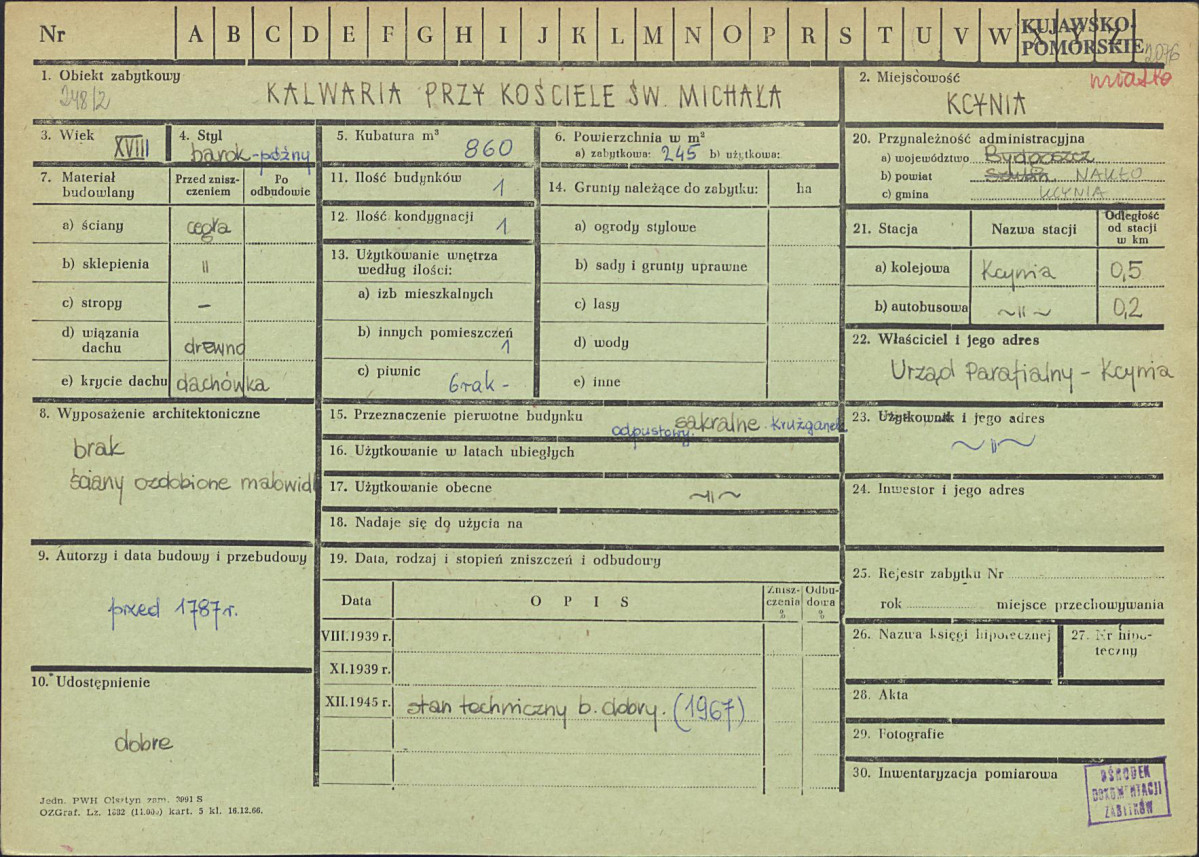 Nr A B C D E F G H I J K L M N O P R S T U V W X Y Z
KUJAWSKO-
POMORSKIE
2076
miasto
1. Obiekt zabytkowy
248/2
KALWARIA PRZY KOŚCIELE ŚW. MICHAŁA
2. Miejscowość
KCYNIA
3. Wiek
XVIII
4. Styl
barok-późny
5. Kubatura m³
860
6. Powierzchnia w m²
a) zabytkowa: 245 b) użytkowa:
7. Materiał
budowlany
Przed znisz-
czeniem
Po
odbudowie
a) ściany cegła
b) sklepienia "
c) stropy –
d) wiązania
dachu drewno
e) krycie dachu dachówka
8. Wyposażenie architektoniczne
brak
ściany ozdobione malowid
9. Autorzy i data budowy i przebudowy
przed 1787 r.
10. Udostępnienie
dobre
11. Ilość budynków 1
12. Ilość kondygnacji 1
13. Użytkowanie wnętrza
według ilości:
a) izb mieszkalnych
b) innych pomieszczeń
1
c) piwnic
brak -
14. Grunty należące do zabytku: ha
a) ogrody stylowe
b) sady i grunty uprawne
c) lasy
d) wody
e) inne
15. Przeznaczenie pierwotne budynku
sakralne krużganek
odpustowy.
16. Użytkowanie w latach ubiegłych
17. Użytkowanie obecne ~"~
18. Nadaje się do użycia na
19. Data, rodzaj i stopień zniszczeń i odbudowy
Data
O P I S
Znisz-
czenia
%
Odbu-
dowa
%
VIII.1939 r.
XI.1939 r.
XII.1945 r. stan techniczny b. dobry. (1967)
20. Przynależność administracyjna
a) województwo Bydgoszcz
b) powiat Szubin NAKŁO
c) gmina KCYNIA
21. Stacja
Nazwa stacji
Odległość
od stacji
w km
a) kolejowa Kcynia 0,5
b) autobusowa ~"~ 0,2
22. Właściciel i jego adres
Urząd Parafialny - Kcynia
23. Użytkownik i jego adres
~"~
24. Inwestor i jego adres
25. Rejestr zabytku Nr
rok miejsce przechowywania
26. Nazwa księgi hipotecznej
27. Nr hipo-
teczny
28. Akta
29. Fotografie
30. Inwentaryzacja pomiarowa
OŚRODEK
DOKUMENTACJI
ZABYTKÓW
Jedn. PWH Olsztyn zam. 2091 S
OZGraf. Lz. 1832 (11.000) kart. 5 kl. 16.12.66.